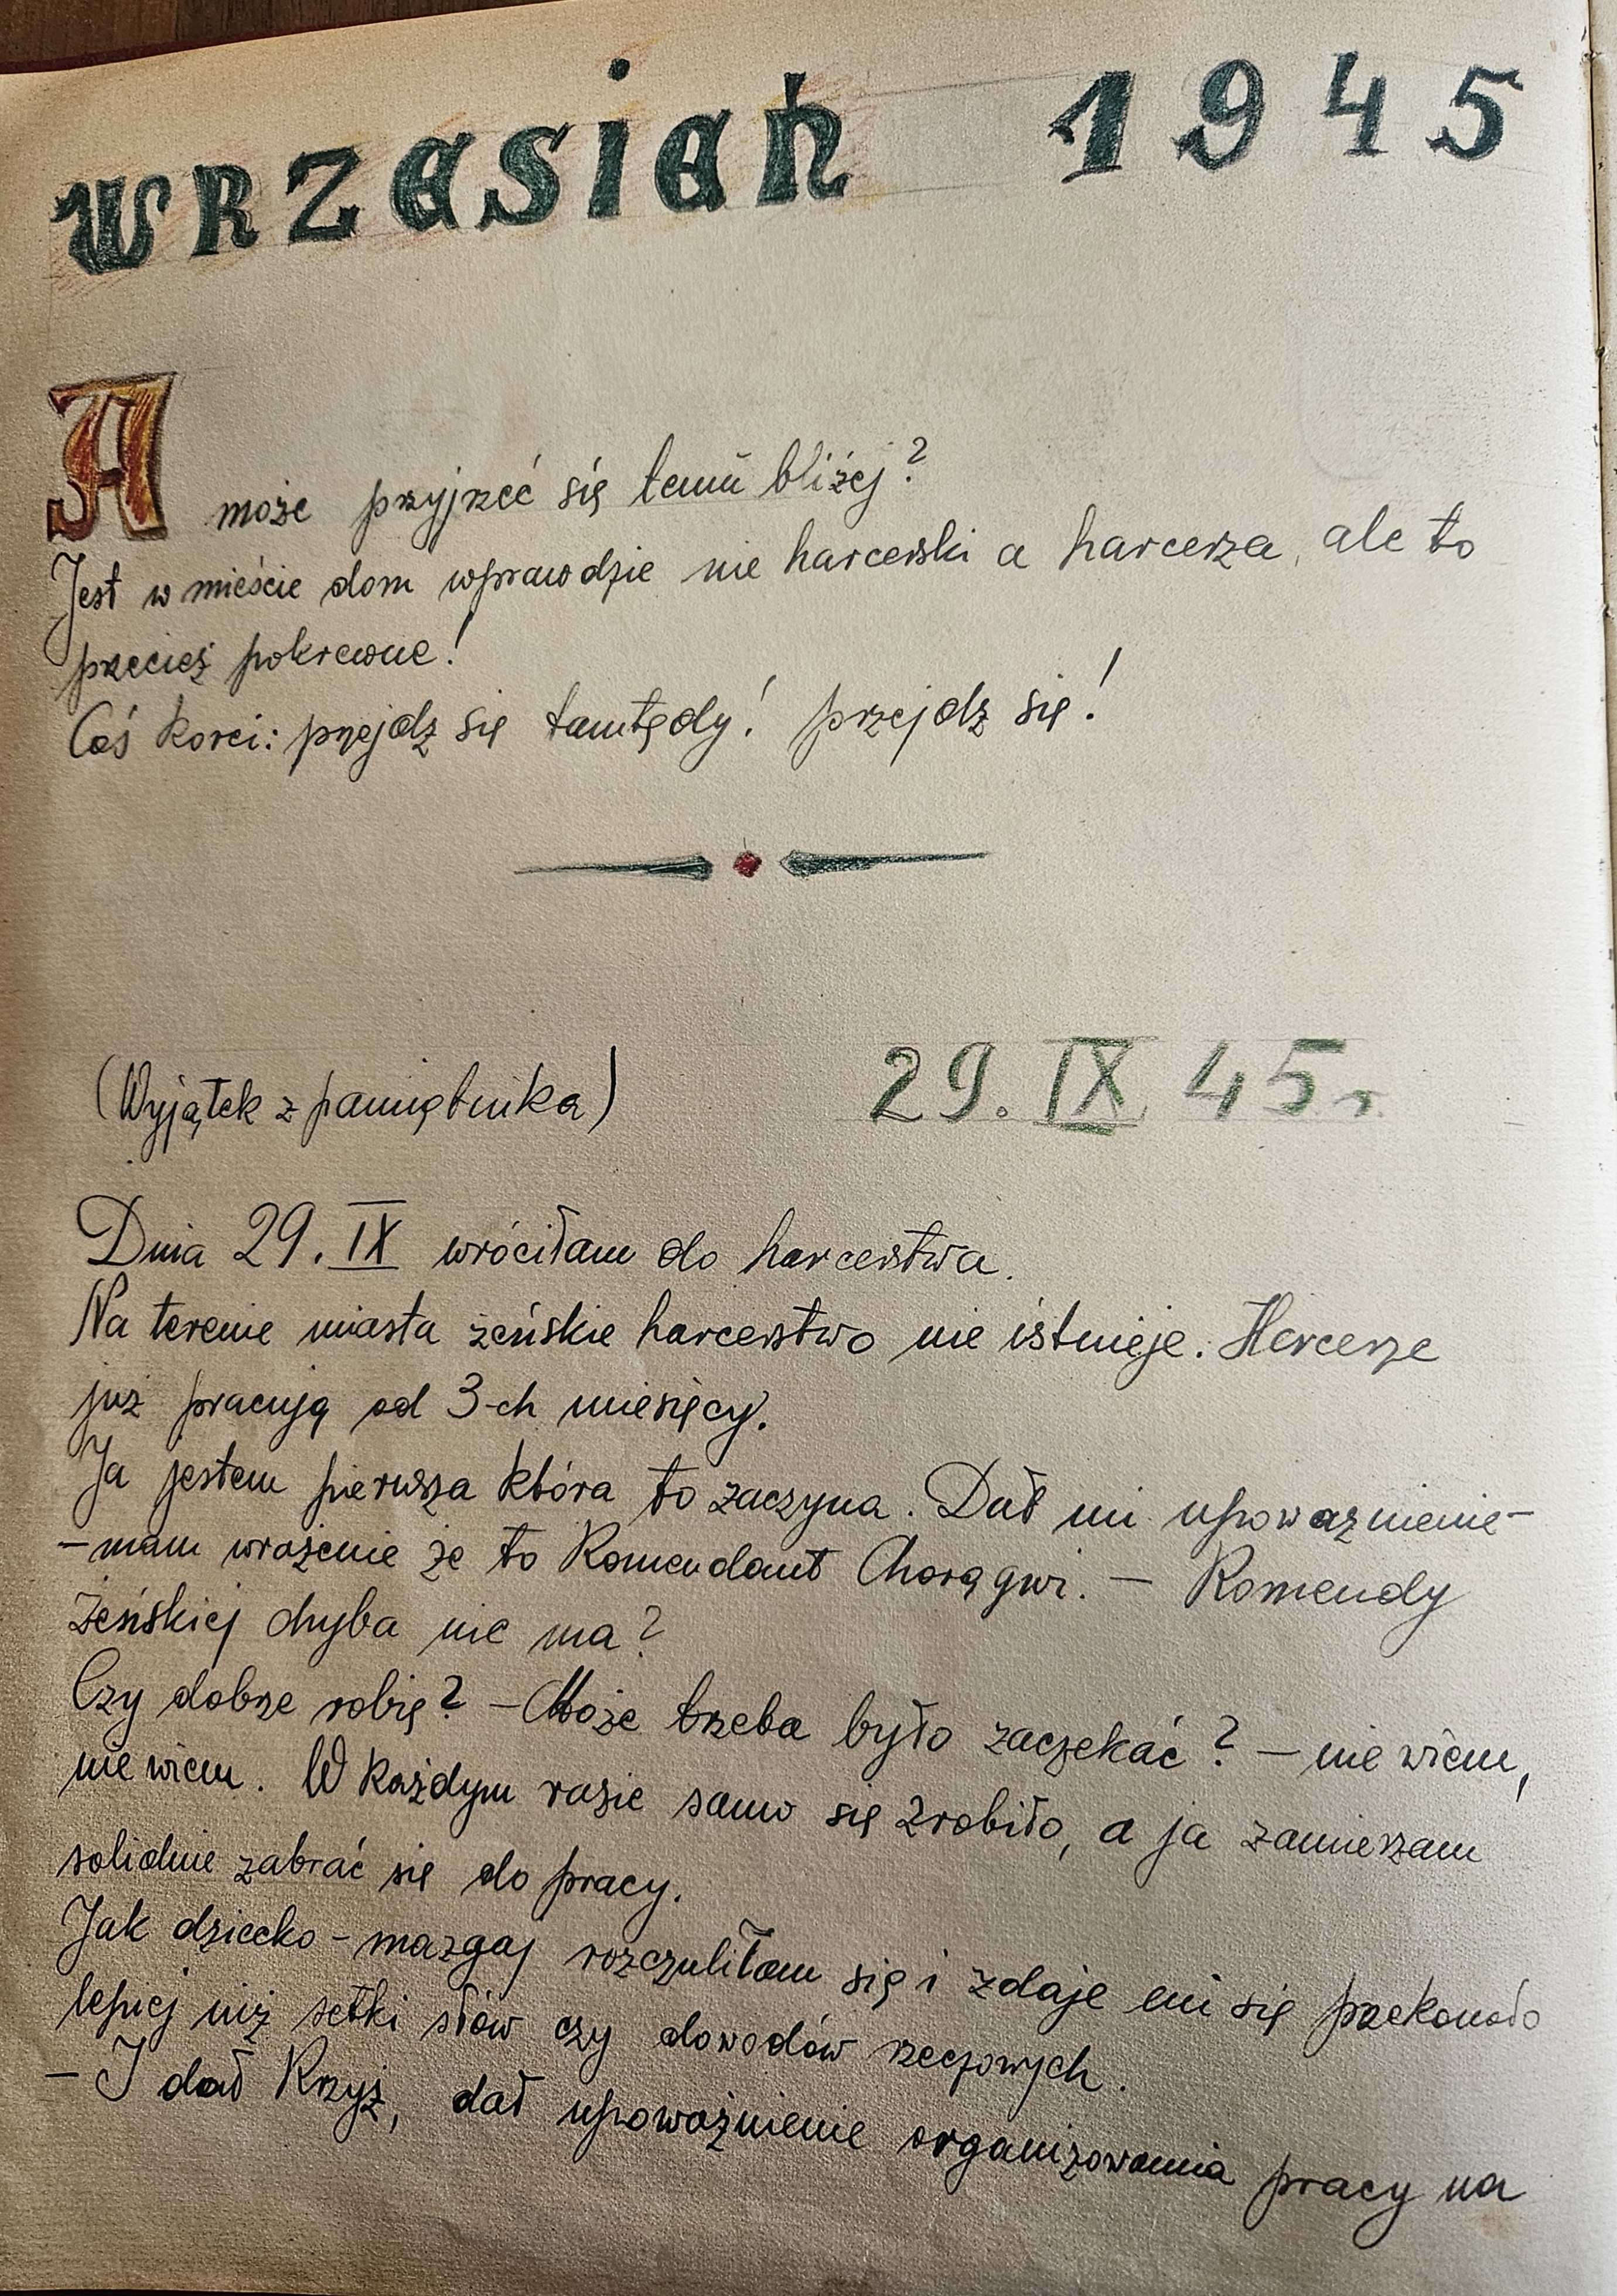 WRZESIEŃ 1945
A może przyjrzeć się temu bliżej?
Jest w mieście dom wprawdzie nie harcerski a harcerza, ale to
przecież pokrewne!
Coś korci: przejdz się tamtędy! przejdz się!
(Wyjątek z pamiętnika) 29. IX 45 r.
Dnia 29. IX wróciłam do harcerstwa.
Na terenie miasta żeńskie harcerstwo nie istnieje. Harcerze
już pracują od 3-ch miesięcy.
Ja jestem pierwsza która to zaczyna. Dał mi upoważnienie -
- mam wrażenie że to Komendant Chorągwi. - Komendy
Żeńskiej chyba nie ma?
Czy dobrze robię? - Może trzeba było zaczekać? - nie wiem,
nie wiem. W każdym razie samo się zrobiło, a ja zamierzam
solidnie zabrać się do pracy.
Jak dziecko - mazgaj rozczuliłam się i zdaje mi się przekonało
lepiej niż setki słów czy dowodów rzeczowych.
- I dał Krzyż, dał upoważnienie organizowania pracy na